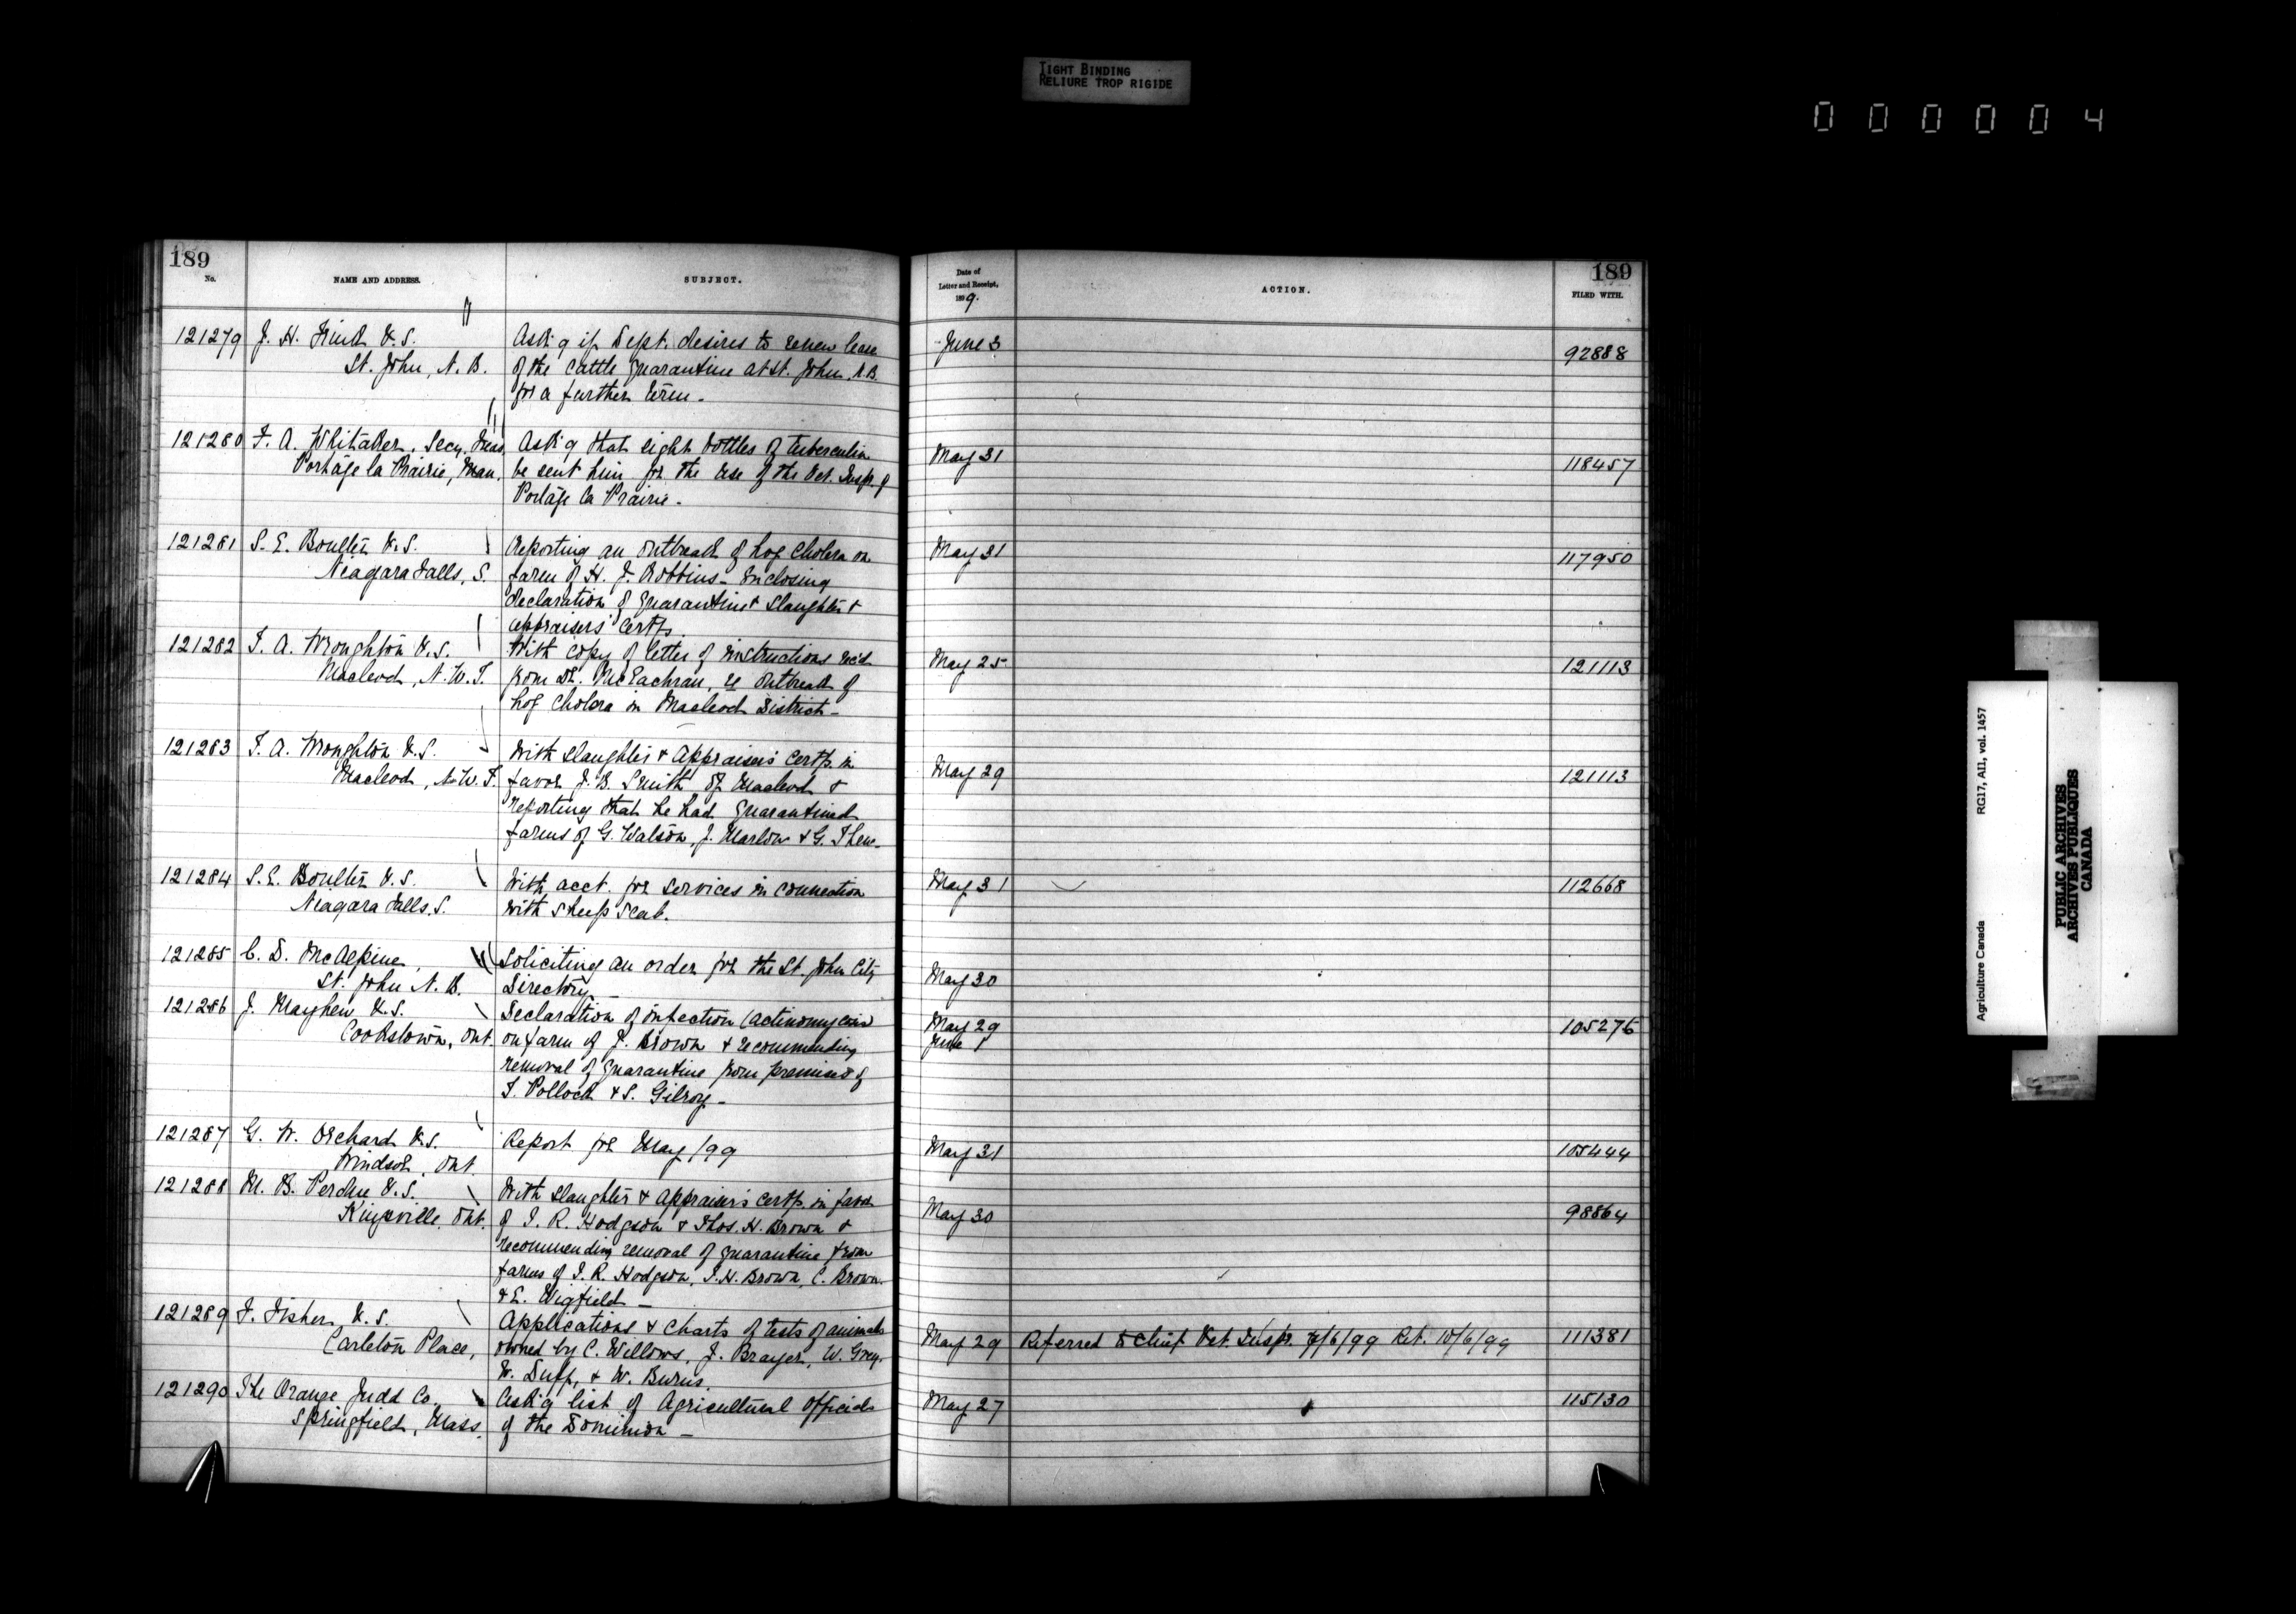 TIGHT BINDING
RELIURE TROP RIGIDE
000004
189
No.
NAME AND ADDRESS.
SUBJECT.
Date of
Letter and Receipt,
1899.
ACTION.
189
FILED WITH.
121279 J. H. Frink V.S. Ask'g if Dept. desires to renew lease June 3 92888
St. John, N. B. of the Cattle Quarantine at St. John, N.B.
for a further term -
121280 F. A. Whitaker, Secy. Treas, Ask'g that eight bottles of tuberculin May 31 118457
Portage la Prairie, Man, be sent him for the use of the Vet. Insp. of
Portage la Prairie -
121281 S. E. Boulter V.S. Reporting an outbreak of hog cholera on May 31 117950
Niagara Falls, S. farm of H. J. Robbins - Enclosing
declaration of Quarantine & Slaughter &
appraisers' Certfs
121282 T. A. Wroughton V.S. With copy of letter of instructions rec'd May 25 121113
Macleod, N.W.T. from Dr. McEachran, re outbreak of
hog cholera in Macleod District -
121283 T. A. Wroughton V.S. With Slaughter & Appraiser's Certfs. in May 29 121113
Macleod, N.W.T. favor J. B. Smith of Macleod &
reporting that he had Quarantined
farms of G. Watson, J. Marlow & G.
121284 S. E. Boulter V.S. With acct. for services in connection May 31 112668
Niagara Falls, S. with sheep scab.
121285 C. D. McAlpine, Soliciting an order for the St. John City May 30
St. John N. B. Directory -
121286 J. Mayhew V.S. Declaration of infection (actinomycosis) May 29 105276
Cookstown, Ont. on farm of J. Brown & recommending June 1
removal of Quarantine from premises of
T. Pollock & S. Gilroy -
121287 G. W. Orchard V.S. Report for May/99 May 31 105444
Windsor, Ont.
121288 M. B. Perdue V.S. With Slaughter & Appraiser's Certfs. in favor May 30 98864
Kingsville, Ont. of T. R. Hodgson & Thos. H. Brown &
recommending removal of quarantine from
farms of T. R. Hodgson, T. H. Brown, C. Brown
& E. Wigfield -
121289 F. Fisher, V.S. Applications & charts of tests of animals May 29 Referred to Chief Vet. Insp. 7/6/99 Ret. 10/6/99 111381
Carleton Place, owned by C. Willows, J. Brayer, W. Grey,
W. Duff, & W. Burns.
121290 The Orange Judd Co. Ask'g list of Agricultural Officials May 27 115130
Springfield, Mass. of the Dominion -
Agriculture Canada RG17, AII, vol. 1457
PUBLIC ARCHIVES
ARCHIVES PUBLIQUES
CANADA